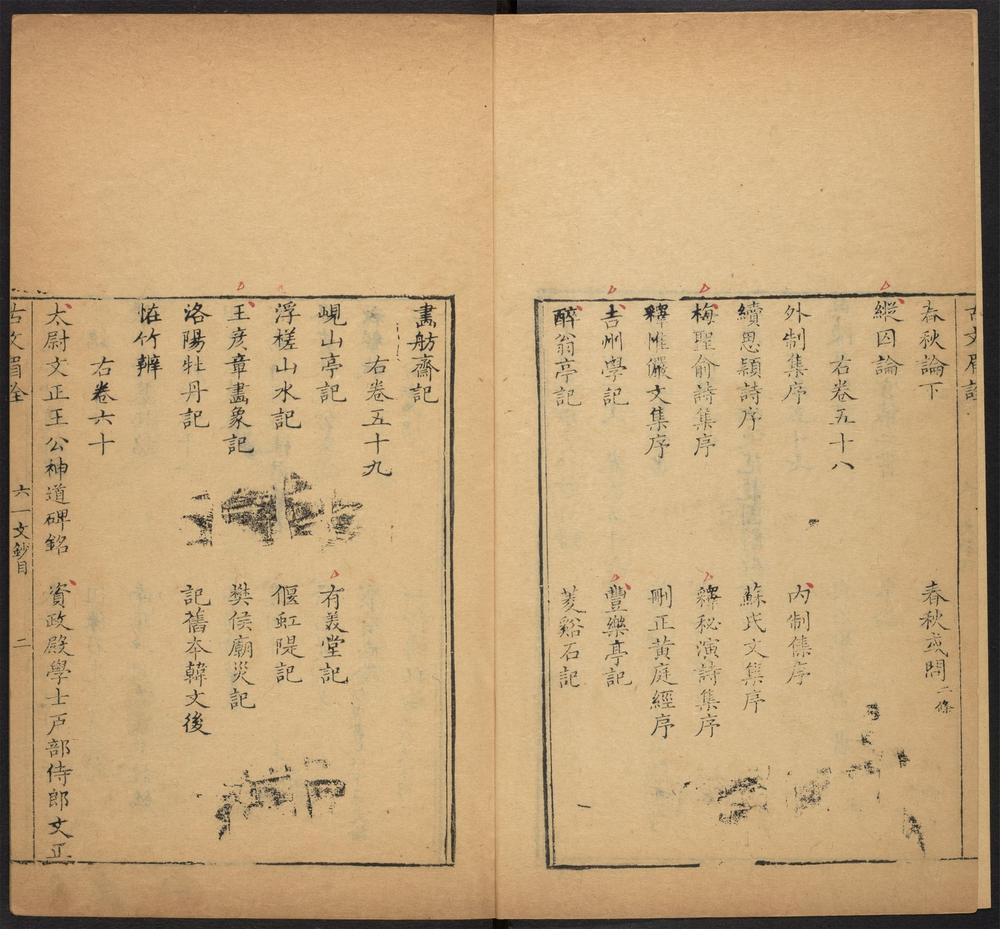 古文眉詮
春秋論下
春秋或問二條
縱囚論
右卷五十八
外制集序
內制集序
續思穎詩序
蘇氏文集序
梅聖俞詩集序
釋秘演詩集序
釋惟儼文集序
刪正黃庭經序
吉州學記
豐樂亭記
醉翁亭記
菱谿石記
畫舫齋記
右卷五十九
峴山亭記
有美堂記
浮槎山水記
偃虹隄記
王彥章畫象記
樊侯廟災記
洛陽牡丹記
記舊本韓文後
怪竹辯
右卷六十
太尉文正王公神道碑銘
資政殿學士戶部侍郎文正
古文眉詮
六一文鈔目
二